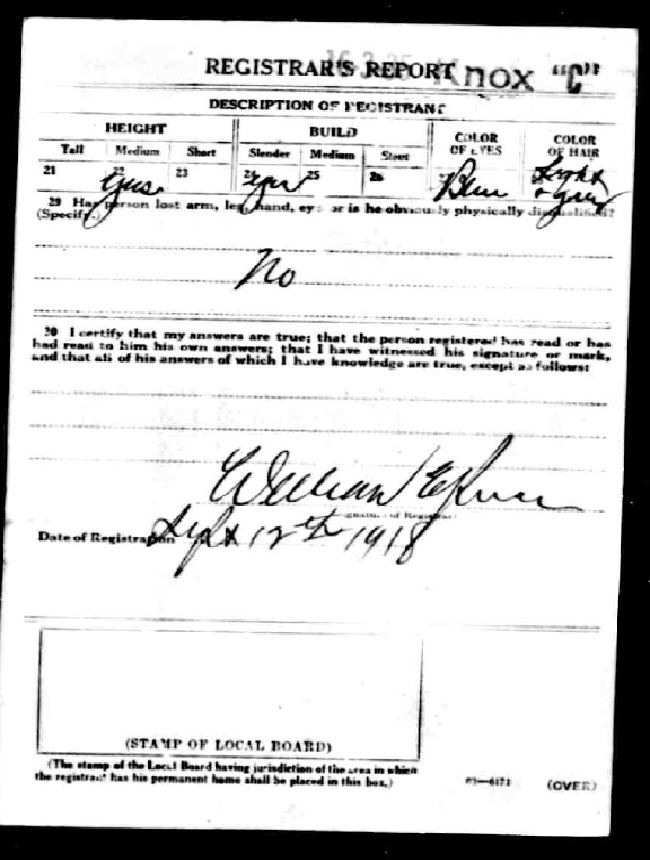 REGISTRAR'S REPORT Knox "C"
DESCRIPTION OF REGISTRANT
HEIGHT BUILD COLOR OF EYES COLOR OF HAIR
Tall Medium Short Slender Medium Stout
21 22 Yes 23 24 Yes 25 26 Blue Light & Grey
29 Has person lost arm, leg, hand, eye, or is he obviously physically disqualified?
(Specify.)
No
30 I certify that my answers are true; that the person registered has read or has
had read to him his own answers; that I have witnessed his signature or mark,
and that all of his answers of which I have knowledge are true, except as follows:
William
(Signature of Registrar)
Date of Registration Sept 12th 1918
(STAMP OF LOCAL BOARD)
(The stamp of the Local Board having jurisdiction of the area in which
the registrant has his permanent home shall be placed in this box.)
03—6171 (OVER)